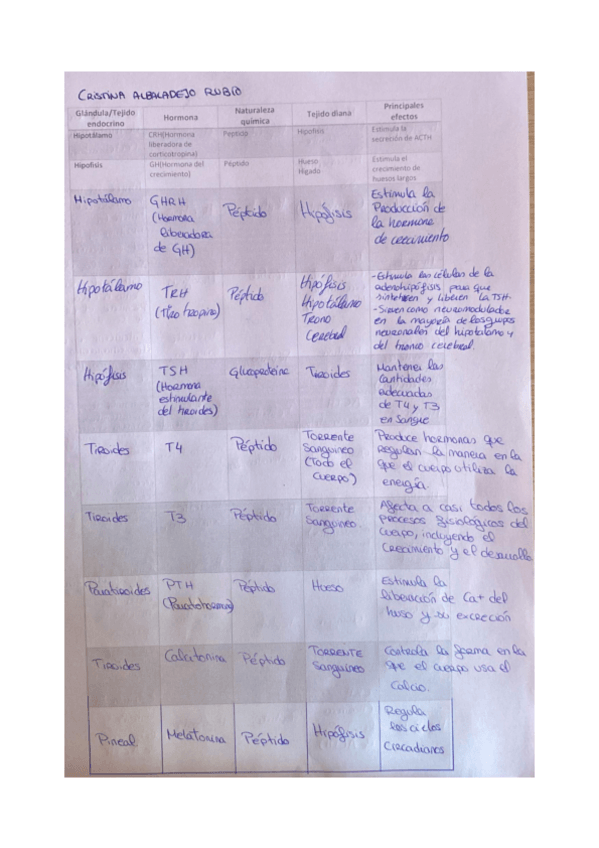 CRISTINA ALBALADEJO RUBIO
Glándula/Tejido endocrino Hormona Naturaleza química Tejido diana Principales efectos
Hipotálamo CRH(Hormona liberadora de corticotropina) Péptido Hipófisis Estimula la secreción de ACTH
Hipófisis GH(Hormona del crecimiento) Péptido Hueso Hígado Estimula el crecimiento de huesos largos
Hipotálamo GHRH (Hormona liberadora de GH) Péptido Hipófisis Estimula la Producción de la hormona de crecimiento
Hipotálamo TRH Péptido Hipófisis Hipotálamo Trono Cerebral -Estimula las células de la adenohipófisis para que sinteticen y liberen la TSH. -Sirven como neuromodulador en la mayoría de los grupos neuronales del hipotálamo y del tronco cerebral.
Hipófisis TSH (Hormona estimulante del tiroides) Glucoproteína Tiroides Mantener las cantidades adecuadas de T4 y T3 en Sangre
Tiroides T4 Péptido TORRENTE Sanguíneo (Todo el cuerpo) Produce hormonas que Regulan la manera en la que el cuerpo utiliza la energía.
Tiroides T3 Péptido TORRENTE Sanguíneo. Afecta a casi todos los procesos fisiológicos del cuerpo, incluyendo el crecimiento y el desarrollo
Paratiroides PTH (Paratohormona) Péptido Hueso Estimula la liberación de Ca+ del hueso y su excreción
Tiroides Calcitonina Péptido TORRENTE Sanguíneo Controla la forma en la que el cuerpo usa el Calcio.
Pineal Melatonina Péptido Hipófisis Regula los ciclos Circadianos